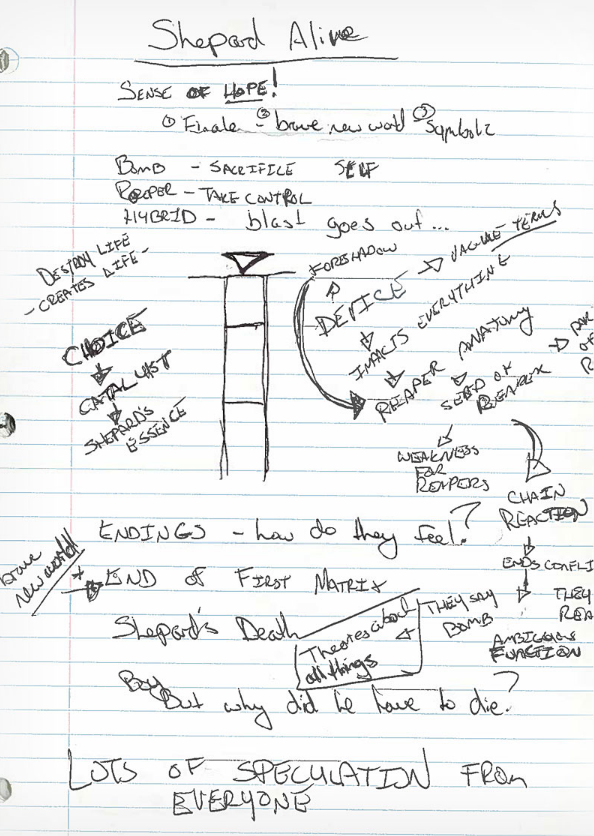 Shepard Alive
SENSE OF HOPE!
① Finale - ② brave new world ③ Symbols
BOMB - SACRIFICE SELF
REAPER - TAKE CONTROL
HYBRID - blast goes out...
DESTROY LIFE
- CREATES LIFE -
CHOICE
CATALYST
SHEPARD'S
ESSENCE
FORSHADOW
DEVICE
VAGUE TERMS
IMPACTS EVERYTHING
REAPER ANATOMY
SEED OF
REAPER
WEAKNESS
FOR
REAPERS
CHAIN
REACTION
ENDS CONFLI
AMBIGUOUS
FUNCTION
THEY
REA
ENDINGS - how do they feel?
brave
new world!
END OF FIRST MATRIX
Shepard's Death
Theories about
all things
THEY SAY
BOMB
Boy
But why did he have to die?
LOTS OF SPECULATION FROM
EVERYONE